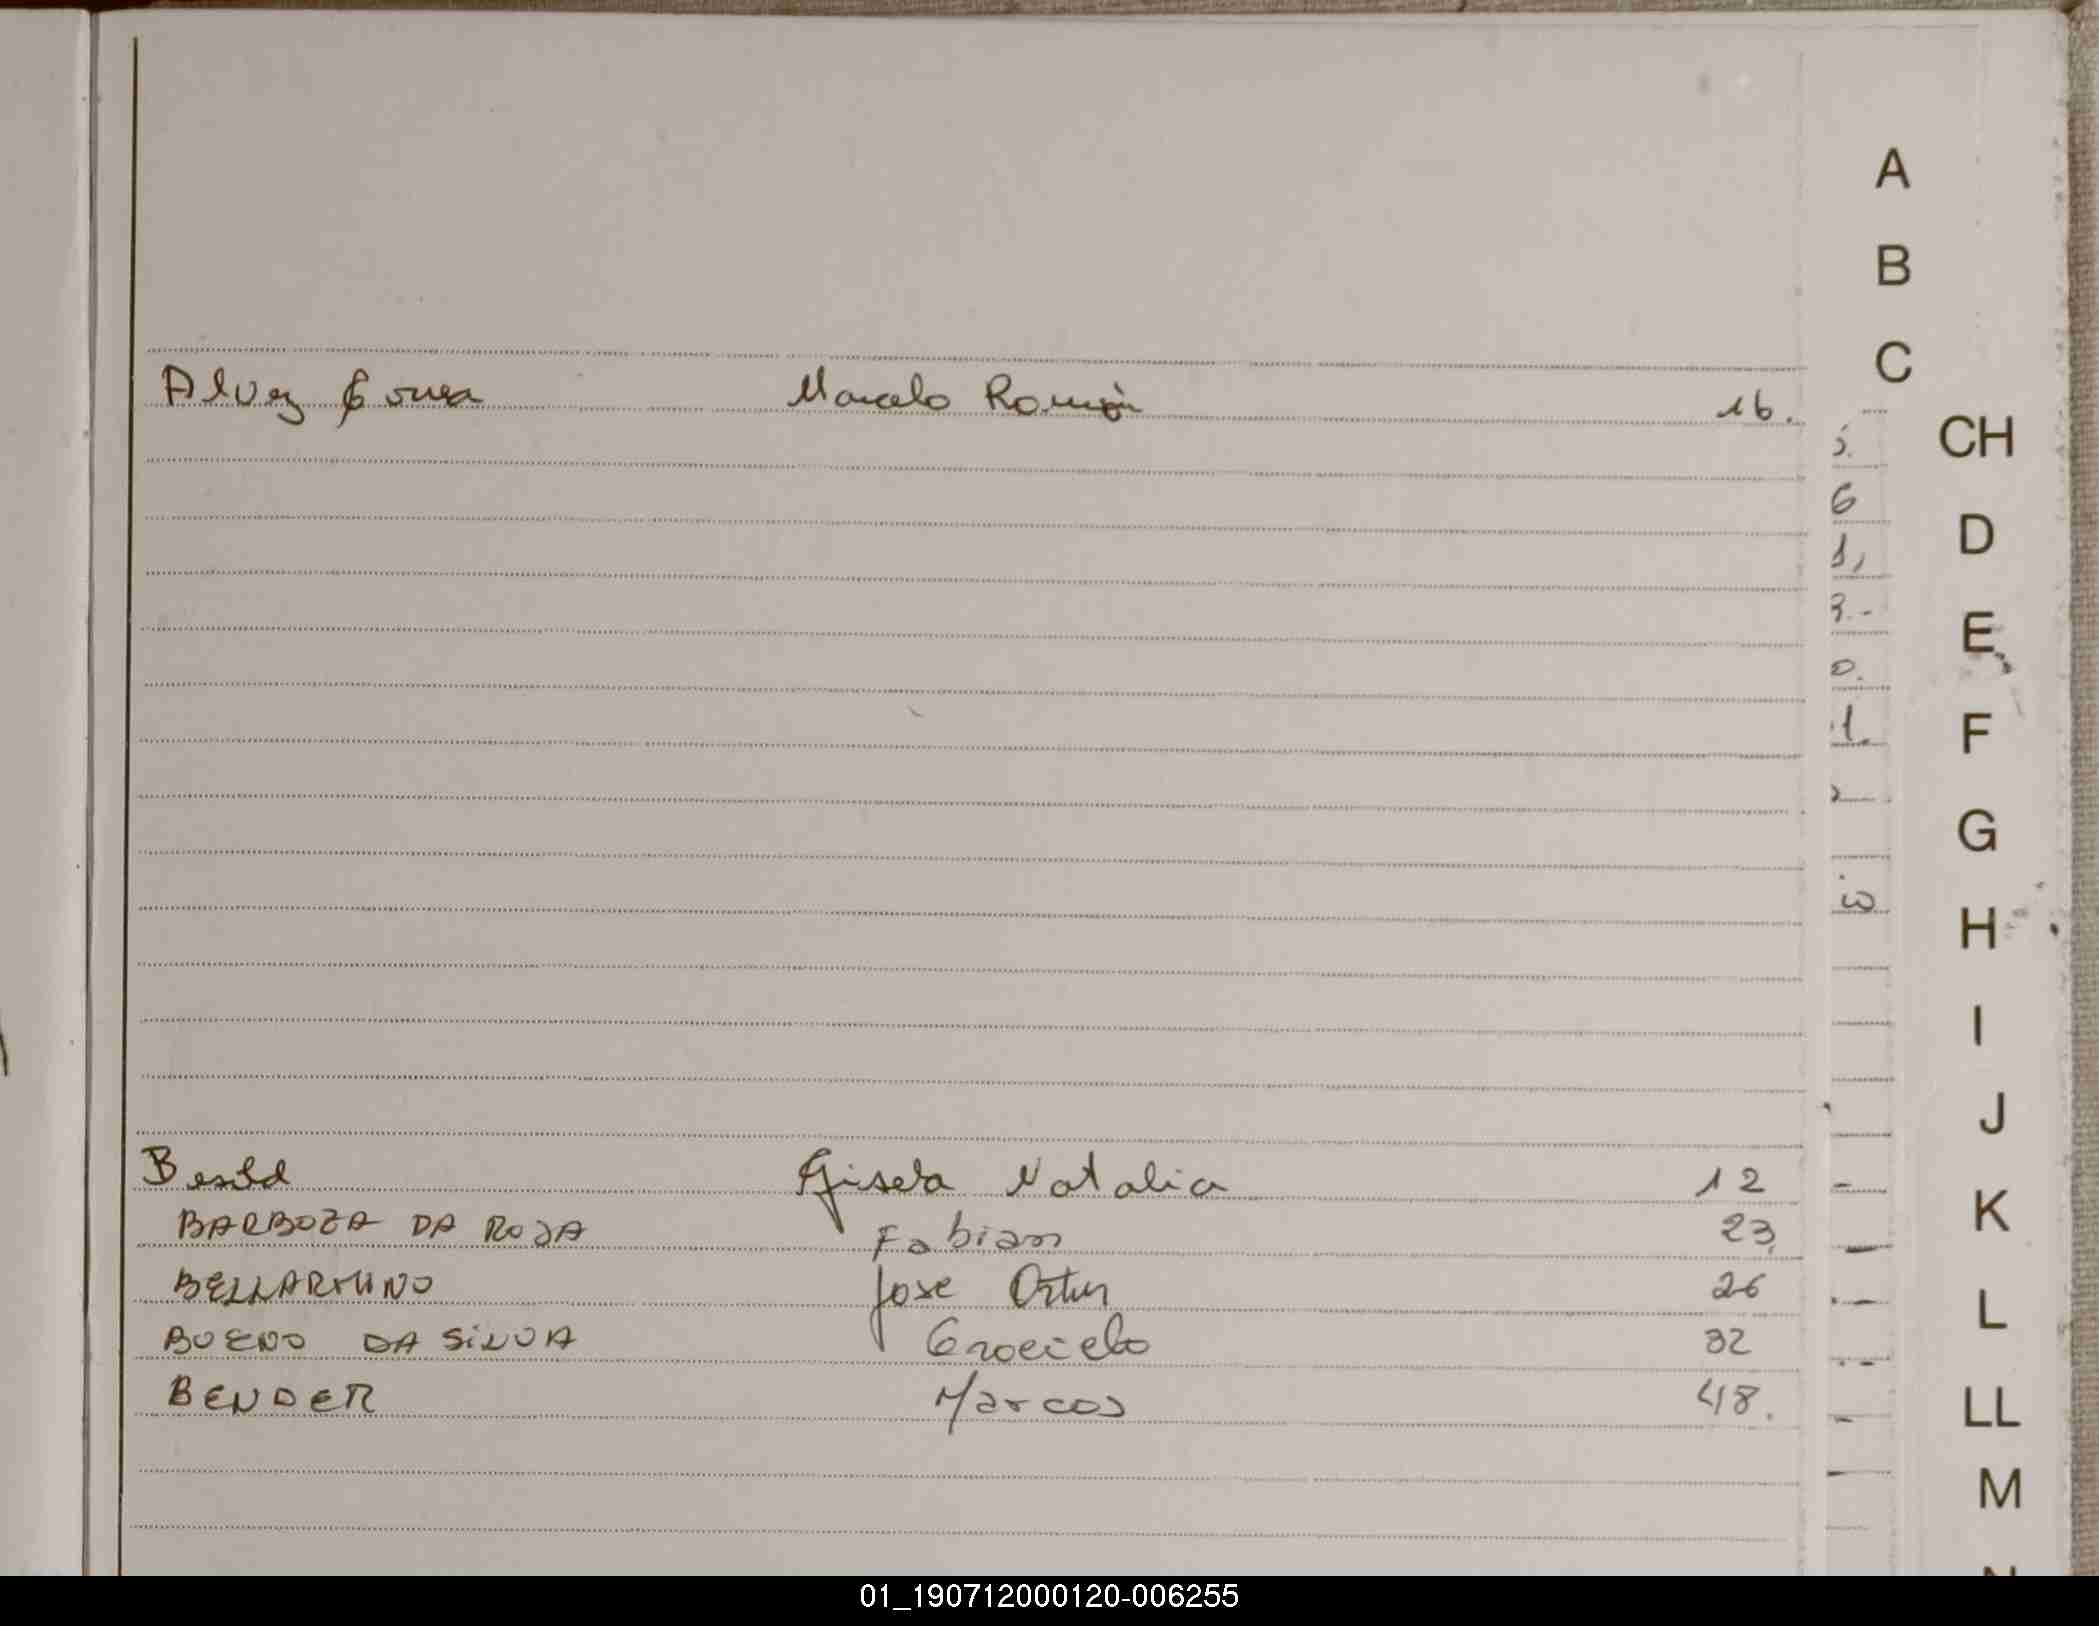 A
B
C
Alvez Marcelo Ramón 16.
CH
6
D
1,
3.-
E
0.
1.
F
G
io
H
I
J
Gisela Natalia 12
K
BARBOZA DA ROSA Fabian 23.
BELLARMINO Jose 26
L
BUENO DA SILVA Graciela 32
BENDER Marcos 48.
LL
M
01_190712000120-006255